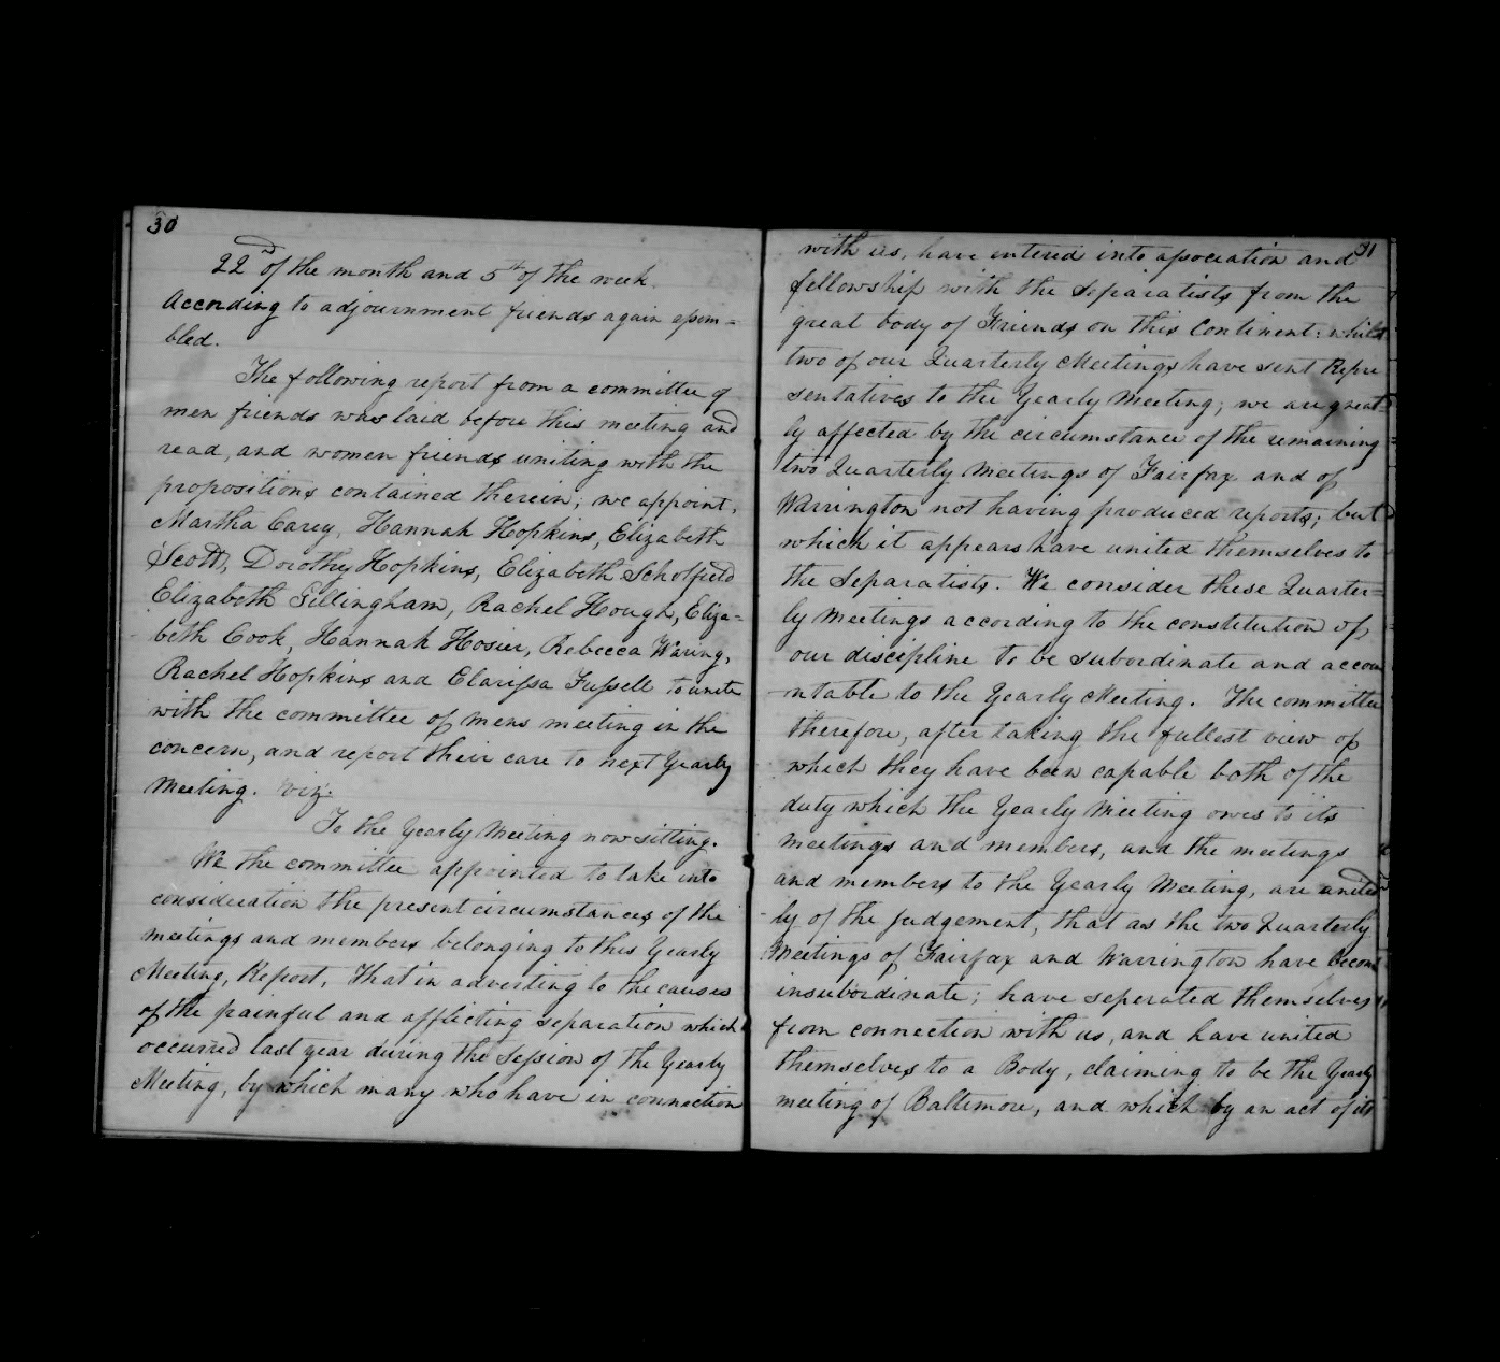 30
22nd of the month and 5th of the week.
According to adjournment friends again assem=
bled.
The following report from a committee of
men friends was laid before this meeting and
read, and women friends uniting with the
propositions contained therein; we appoint,
Martha Carey, Hannah Hopkins, Elizabeth
Scott, Dorothy Hopkins, Elizabeth Scholfield
Elizabeth Gillingham, Rachel Hough, Eliza=
beth Cook, Hannah Hosier, Rebecca Waring,
Rachel Hopkins and Clarissa Fussell to unite
with the committee of mens meeting in the
concern, and report their care to next Yearly
Meeting. viz.
To the Yearly Meeting now sitting.
We the committee appointed to take into
consideration the present circumstances of the
meetings and members belonging to this Yearly
Meeting, Report, That in adverting to the causes
of the painful and afflicting separation which
occurred last year during the Session of the Yearly
Meeting, by which many who have in connection
31
with us, have entered into association and
fellowship with the Separatists from the
great body of Friends on this Continent: whilst
two of our Quarterly Meetings have sent Repre
sentatives to the Yearly Meeting; we are great=
ly affected by the circumstance of the remaining
two Quarterly Meetings of Fairfax and of
Warrington not having produced reports; but
which it appears have united themselves to
the Separatists. We consider these Quarter=
ly Meetings according to the constitution of
our discipline to be subordinate and accou
ntable to the Yearly Meeting. The committee
therefore, after taking the fullest view of
which they have been capable both of the
duty which the Yearly Meeting owes to its
meetings and members, and the meetings
and members to the Yearly Meeting, are united
ly of the judgement, that as the two Quarterly
Meetings of Fairfax and Warrington have become
insubordinate; have seperated themselves
from connection with us, and have united
themselves to a Body, claiming to be the Yearly
meeting of Baltimore, and which by an act of its